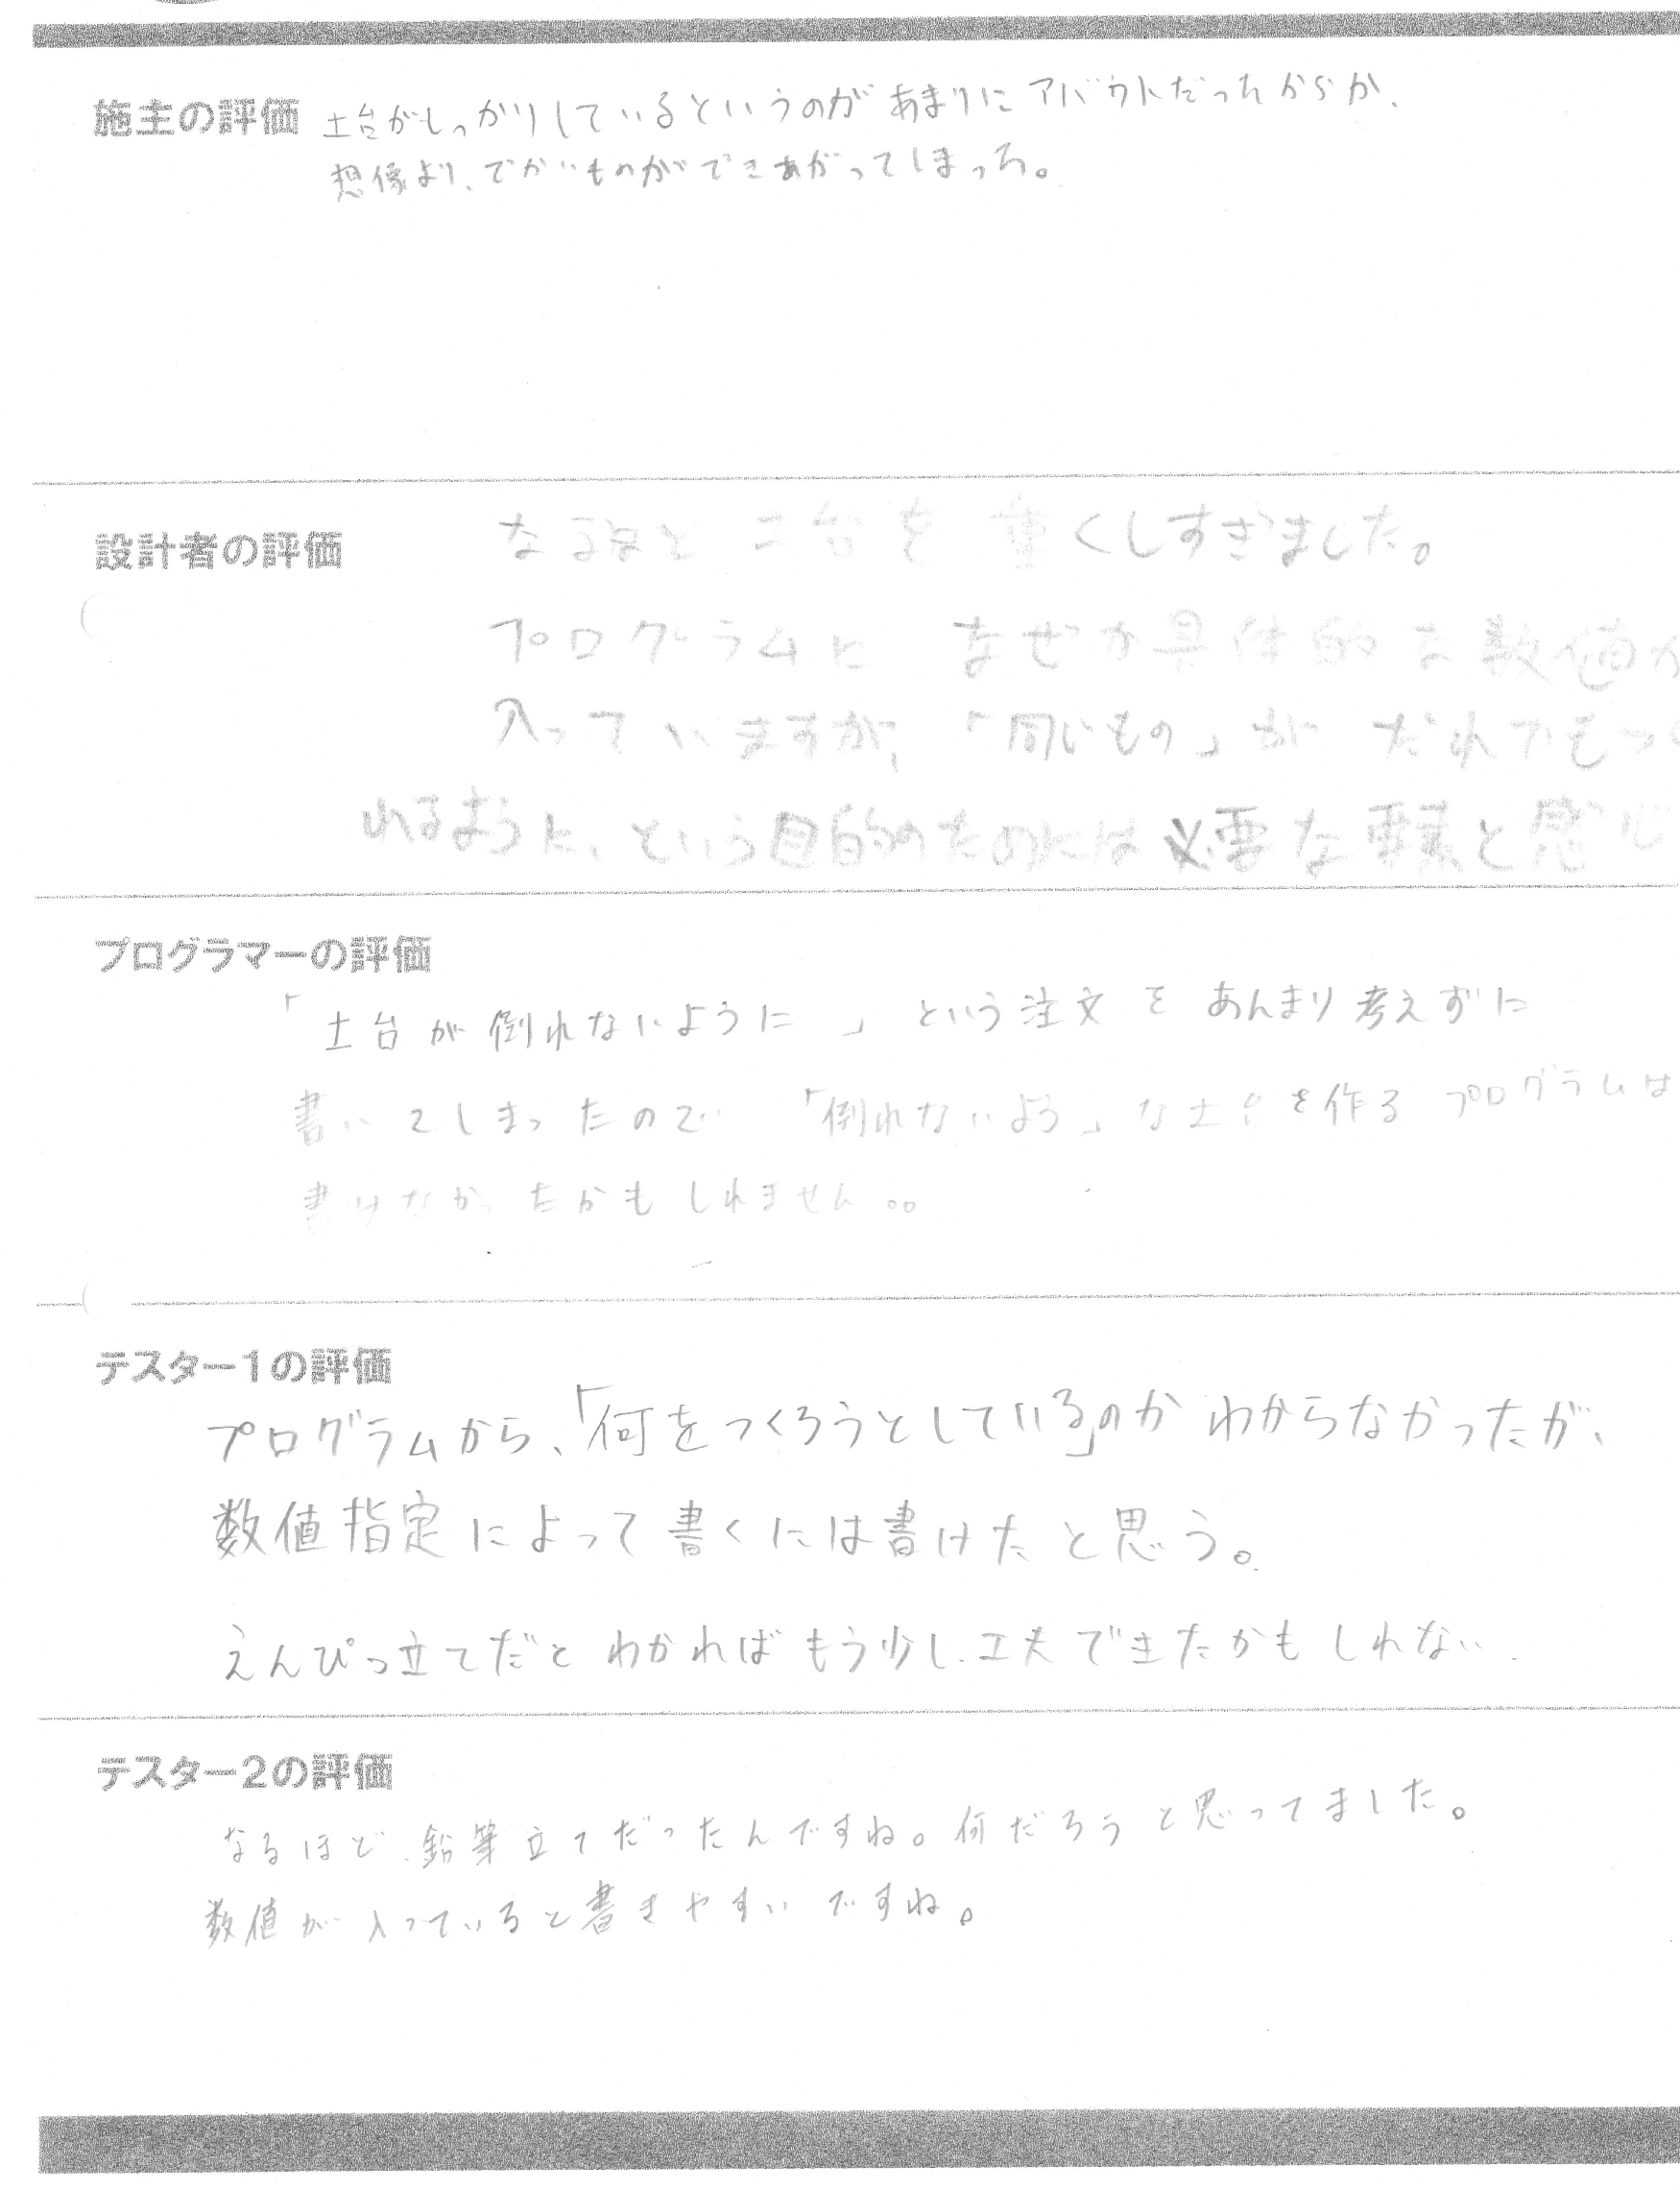 施主の評価 土台がしっかりしているというのがあまりにアバウトだったからか、
想像より、でかいものができあがってしまった。
設計者の評価 なるほど 土台を 重くしすぎました。
プログラムに なぜか具体的な数値が
入っていますが、「同じもの」が だれでもつく
れるように、という目的のためには必要な要素と感じ
プログラマーの評価
「土台が倒れないように」という注文をあんまり考えずに
書いてしまったので 「倒れないよう」な土台を作るプログラムは
書けなかったかもしれません。。
テスター1の評価
プログラムから、「何をつくろうとしている」のかわからなかったが、
数値指定によって書くには書けたと思う。
えんぴつ立てだとわかればもう少し工夫できたかもしれない.
テスター2の評価
なるほど、鉛筆立てだったんですね。何だろうと思ってました。
数値が入っていると書きやすいですね。